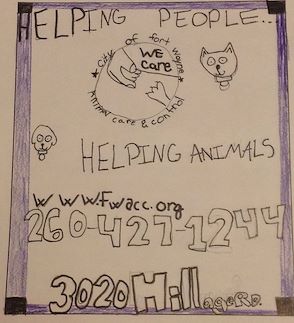 HELPING PEOPLE...
City of fort wayne
WE
Care
ANIMAL care & control
HELPING ANIMALS
WWW.fwacc.org
260-427-1244
3020 Hillegas Rd